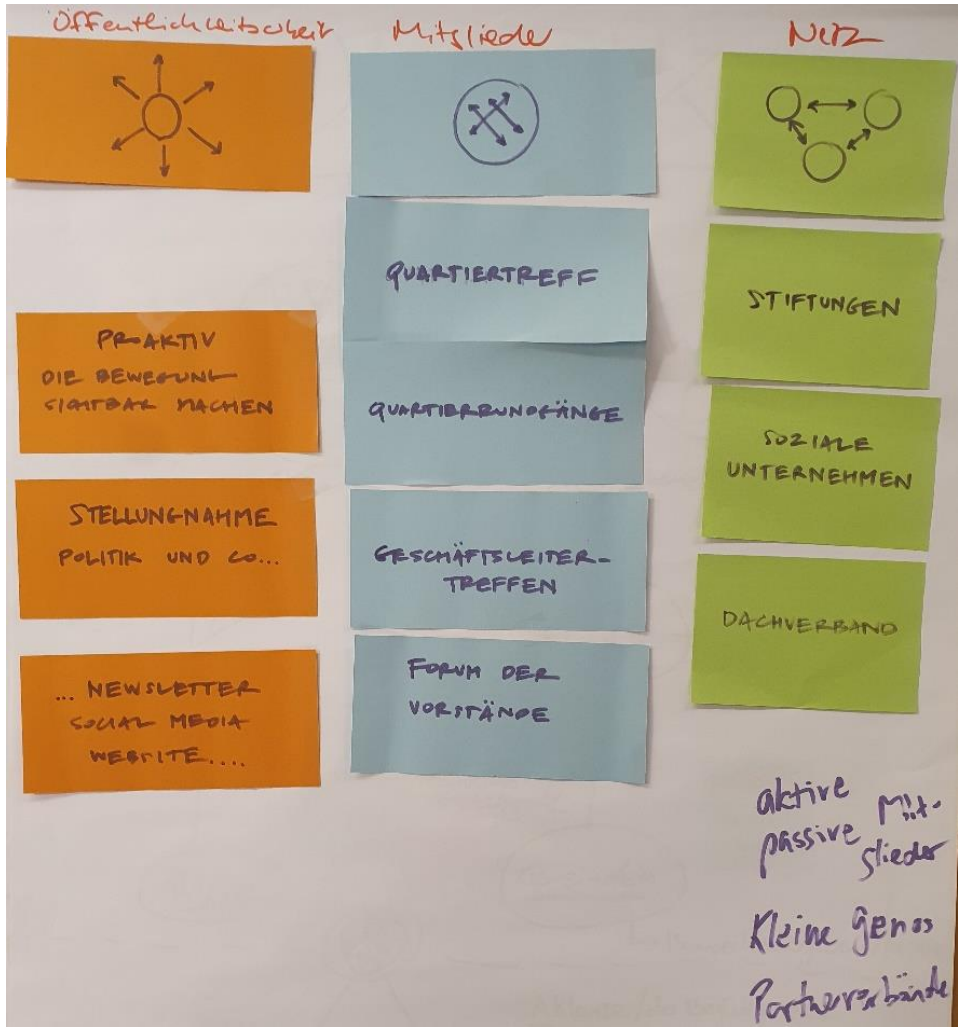 Öffentlichkeitsarbeit
PROAKTIV
DIE BEWEGUNG
SICHTBAR MACHEN
STELLUNGNAHME
POLITIK UND CO...
... NEWSLETTER
SOCIAL MEDIA
WEBSITE....
Mitglieder
QUARTIERTREFF
QUARTIERRUNDGÄNGE
GESCHÄFTSLEITER-
TREFFEN
FORUM DER
VORSTÄNDE
Netz
STIFTUNGEN
SOZIALE
UNTERNEHMEN
DACHVERBAND
aktive
passive Mit-
glieder
Kleine Genoss
Partnerverbände